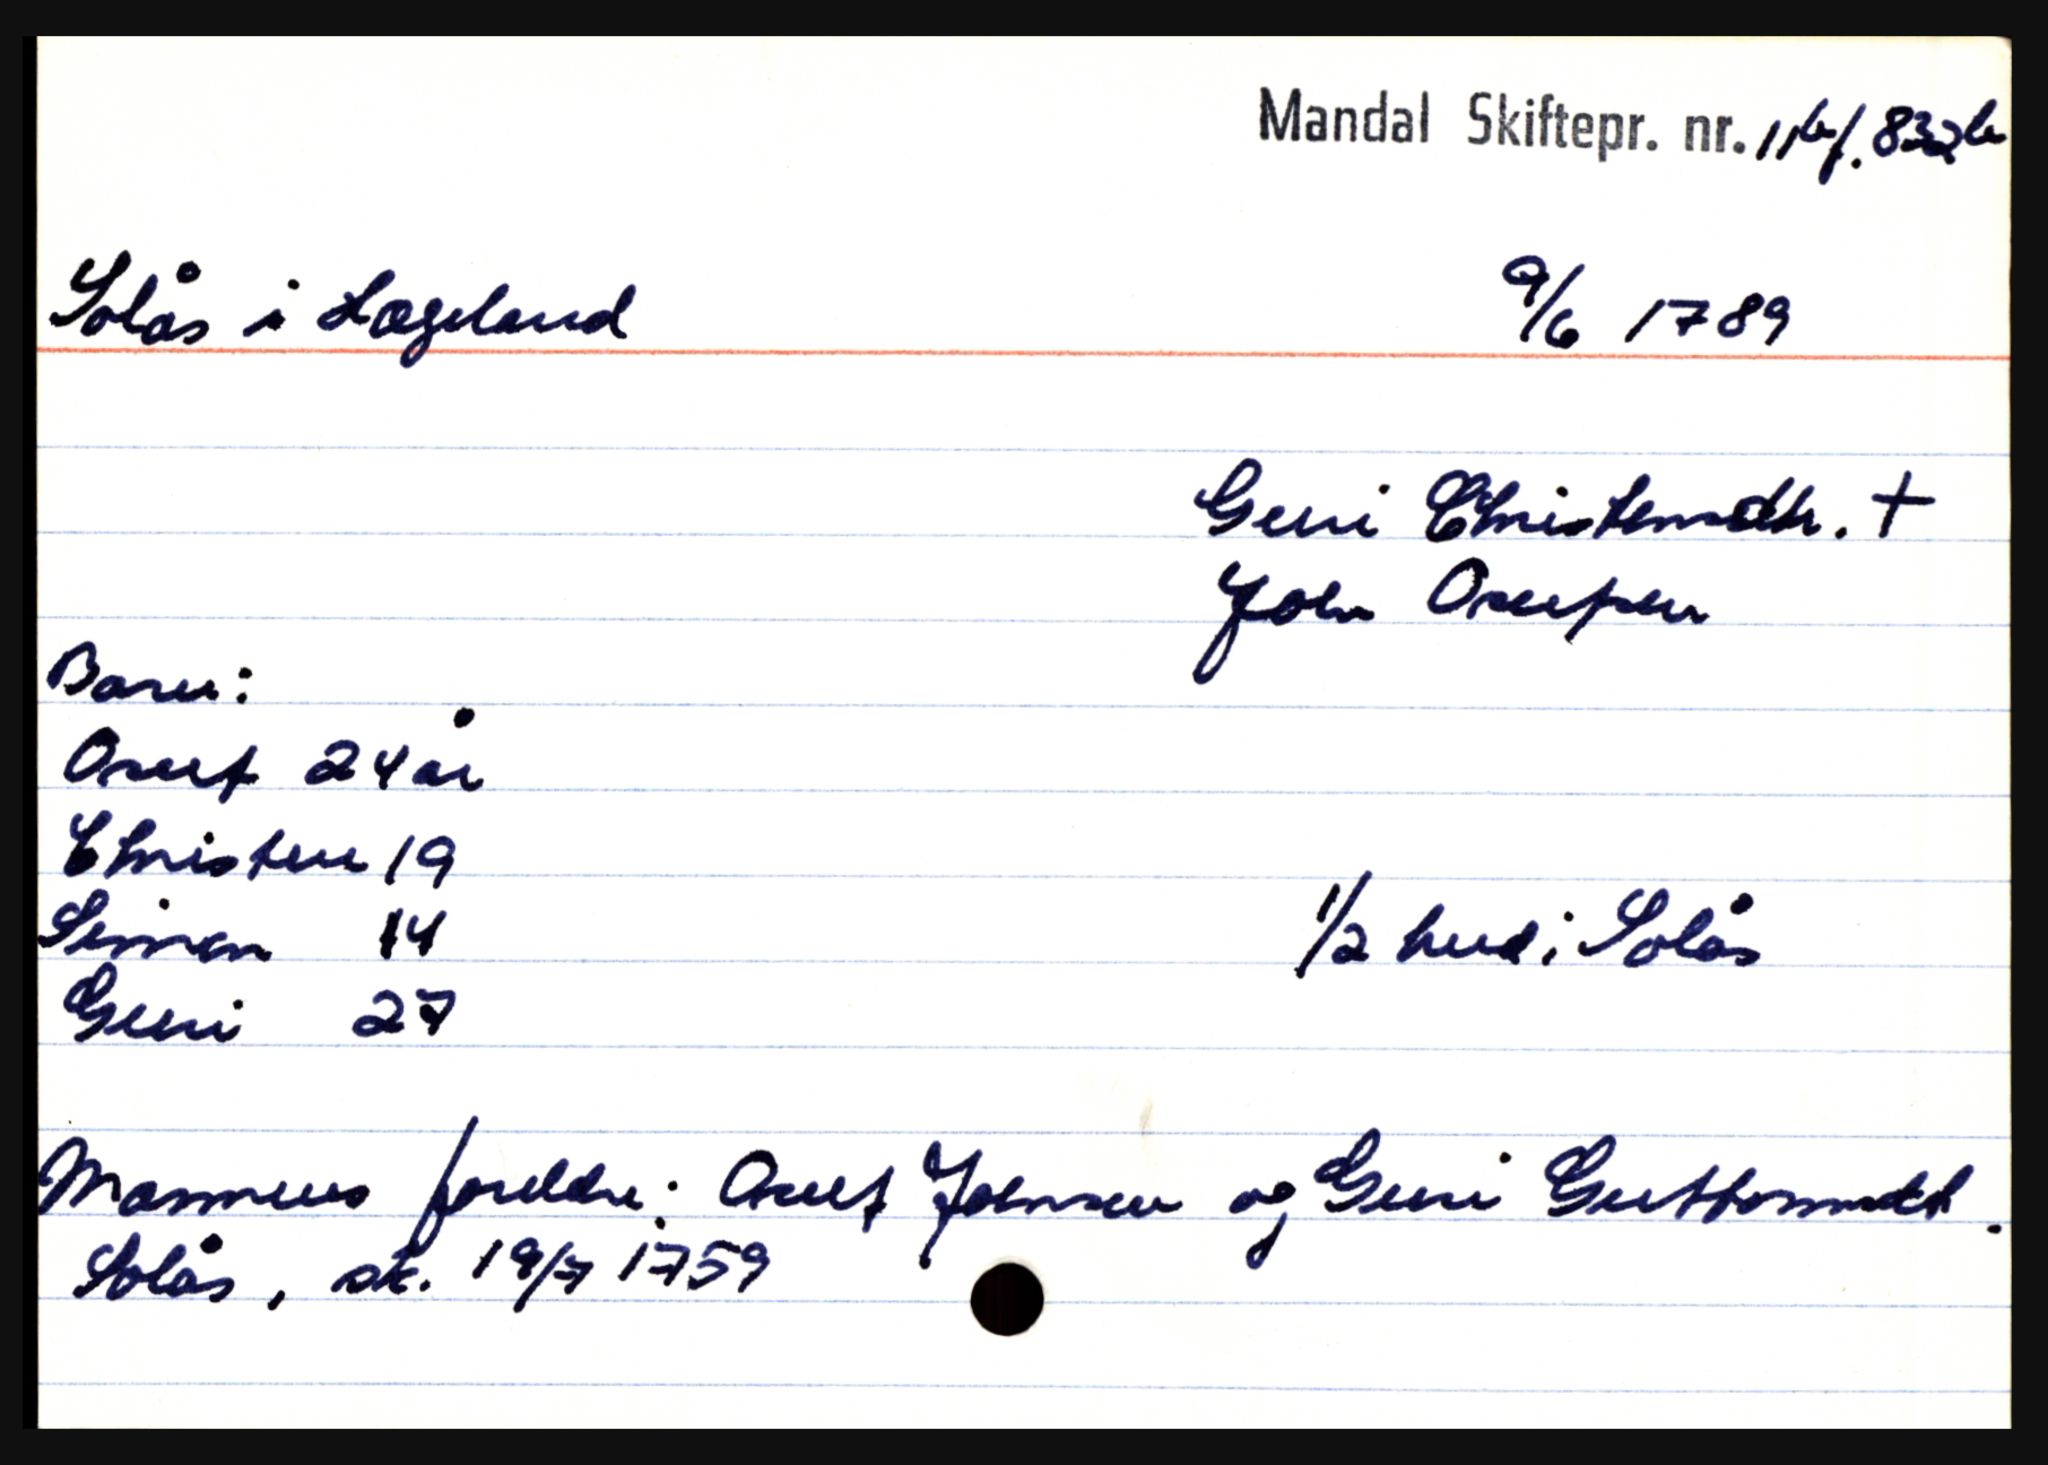 Mandal Skiftepr. nr. 11b f. 832b
Solås i Lægeland 9/6 1789
Guri Christensdtr. +
John Oseufsen
Barn:
Oseuf 24 år
Christen 19
Simon 14 1/2 hud i Solås
Guri 27
Mannens foreldre: Oseuf Johnsen og Guri Guttormsdtr.
Solås, sk. 19/7 1759